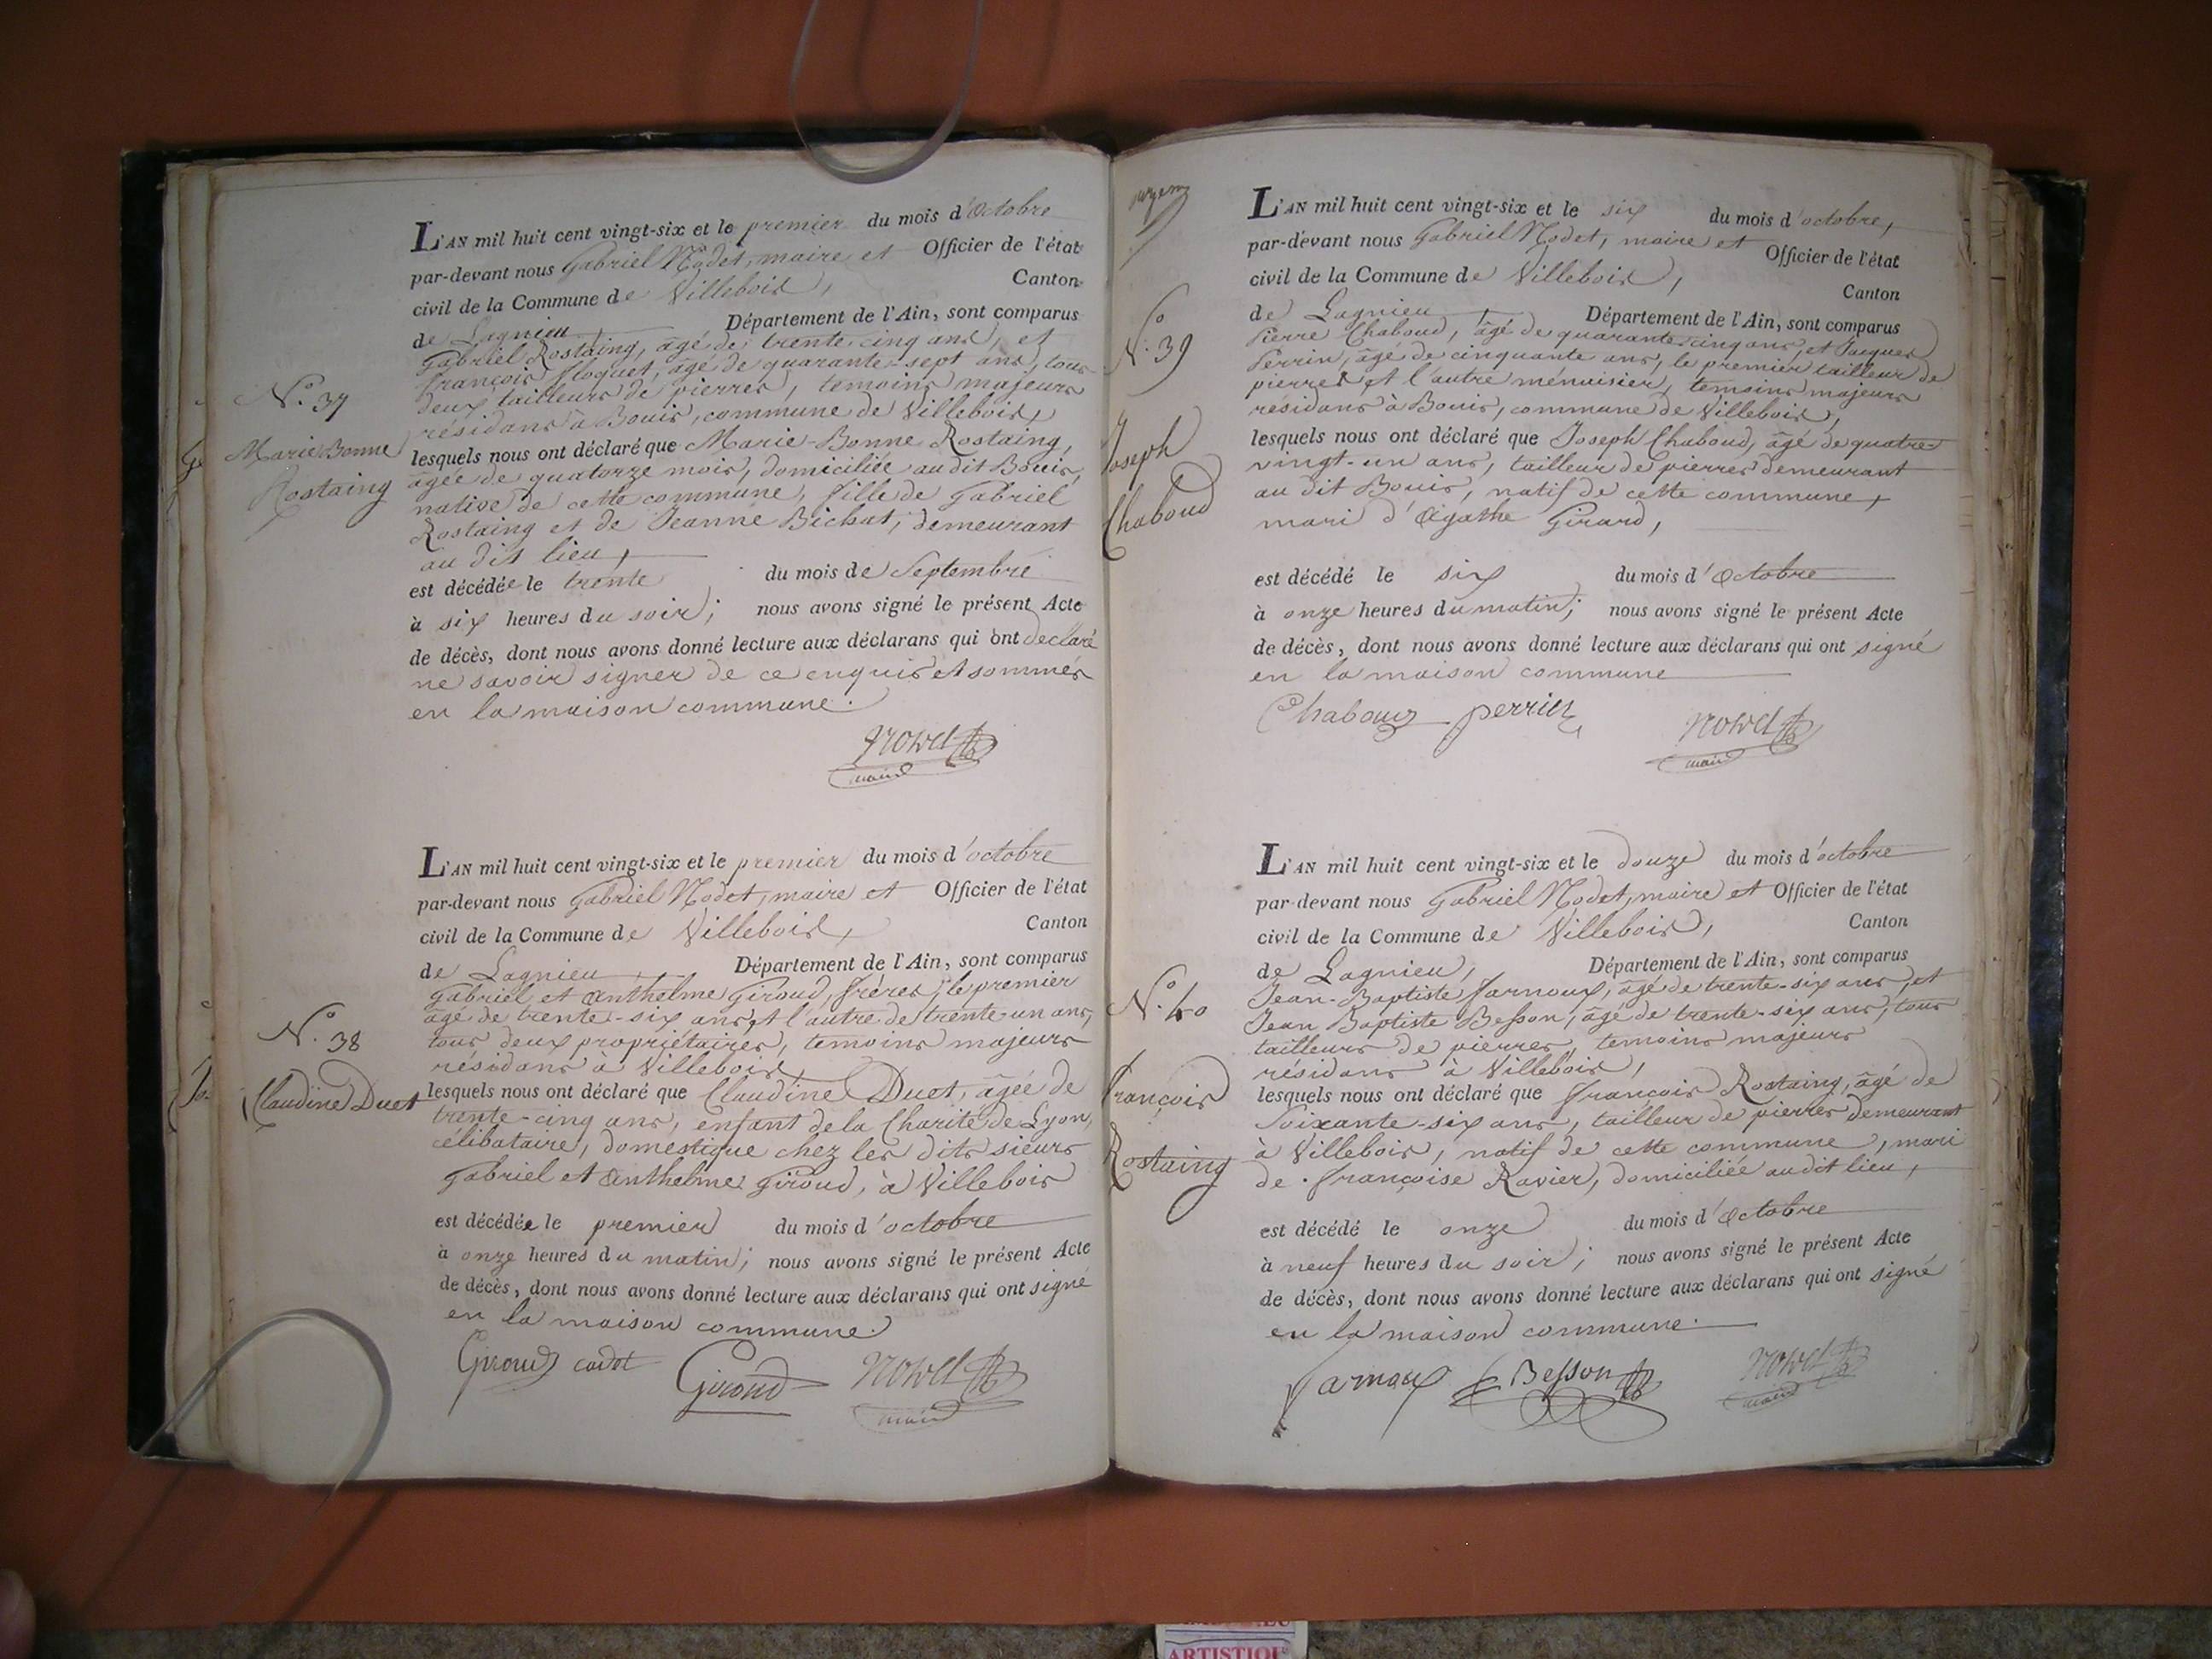 L'AN mil huit cent vingt-six et le premier du mois d'octobre
par-devant nous Gabriel Nodet, maire et Officier de l'état
civil de la Commune de Villebois, Canton
de Lagnieu, Département de l'Ain, sont comparus
Gabriel Rostaing, âgé de trente cinq ans, et
françois floquet, âgé de quarante-sept ans, tous
deux tailleurs de pierres, temoins majeurs
résidans à Bouis, commune de Villebois,
N.º 37
Marie Bonne
Rostaing
lesquels nous ont déclaré que Marie-Bonne Rostaing,
agée de quatorze mois, domiciliée au dit Bouis,
native de cette commune, fille de Gabriel
Rostaing et de Jeanne Bichat, demeurant
au dit lieu,
est décédée le trente du mois de Septembre
à six heures du soir; nous avons signé le présent Acte
de décès, dont nous avons donné lecture aux déclarans qui ont declaré
ne savoir signer de ce enquis et sommés
en la maison commune.
Nodet
maire
L'AN mil huit cent vingt-six et le premier du mois d'octobre
par-devant nous Gabriel Nodet, maire et Officier de l'état
civil de la Commune de Villebois, Canton
de Lagnieu, Département de l'Ain, sont comparus
Gabriel et Anthelme Giroud, frères, le premier
âgé de trente-six ans et l'autre de trente un ans,
tous deux propriétaires, temoins majeurs
résidans à Villebois,
N.º 38
Claudine Duet
lesquels nous ont déclaré que Claudine Duet, âgée de
trente-cinq ans, enfant de la Charité de Lyon,
célibataire, domestique chez les dits sieurs
Gabriel et Anthelme Giroud, à Villebois
est décédée le premier du mois d'octobre
à onze heures du matin; nous avons signé le présent Acte
de décès, dont nous avons donné lecture aux déclarans qui ont signé
en la maison commune.
Giroud cadet Giroud Nodet
maire
L'AN mil huit cent vingt-six et le six du mois d'octobre,
par-devant nous Gabriel Nodet, maire et Officier de l'état
civil de la Commune de Villebois, Canton
de Lagnieu, Département de l'Ain, sont comparus
Pierre Chaboud, âgé de quarante-cinq ans, et Jacques
Perrin, âgé de cinquante ans, le premier tailleur de
pierres et l'autre ménuisier, temoins majeurs
résidans à Bouis, commune de Villebois,
N.º 39
Joseph
Chaboud
lesquels nous ont déclaré que Joseph Chaboud, âgé de quatre-
vingt-un ans, tailleur de pierres demeurant
au dit Bouis, natif de cette commune,
mari d'Agathe Girard,
est décédé le six du mois d'Octobre
à onze heures du matin; nous avons signé le présent Acte
de décès, dont nous avons donné lecture aux déclarans qui ont signé
en la maison commune
Chaboud perrin Nodet
maire
L'AN mil huit cent vingt-six et le douze du mois d'octobre
par-devant nous Gabriel Nodet, maire et Officier de l'état
civil de la Commune de Villebois, Canton
de Lagnieu, Département de l'Ain, sont comparus
Jean-Baptiste Jarnoux, âgé de trente-six ans, et
Jean Baptiste Besson, âgé de trente-six ans, tous
tailleurs de pierres, temoins majeurs
résidans à Villebois,
N.º 40
françois
Rostaing
lesquels nous ont déclaré que françois Rostaing, âgé de
Soixante-six ans, tailleur de pierres demeurant
à Villebois, natif de cette commune, mari
de françoise Ravier, domiciliée au dit lieu,
est décédé le onze du mois d'Octobre
à neuf heures du soir; nous avons signé le présent Acte
de décès, dont nous avons donné lecture aux déclarans qui ont signé
en la maison commune.
Jarnoux Besson Nodet
maire
ARTISTIQU